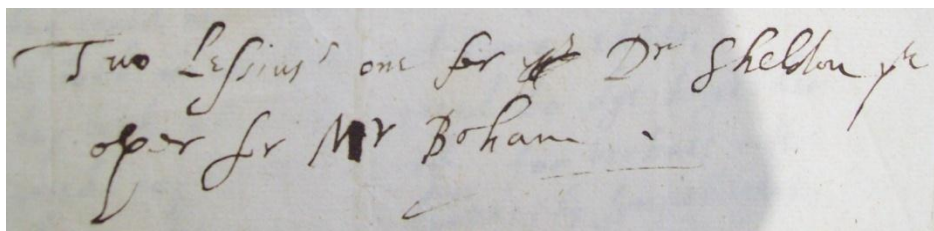 Two Lessius' one for Dr Sheldon ye
oþer for Mr Boham